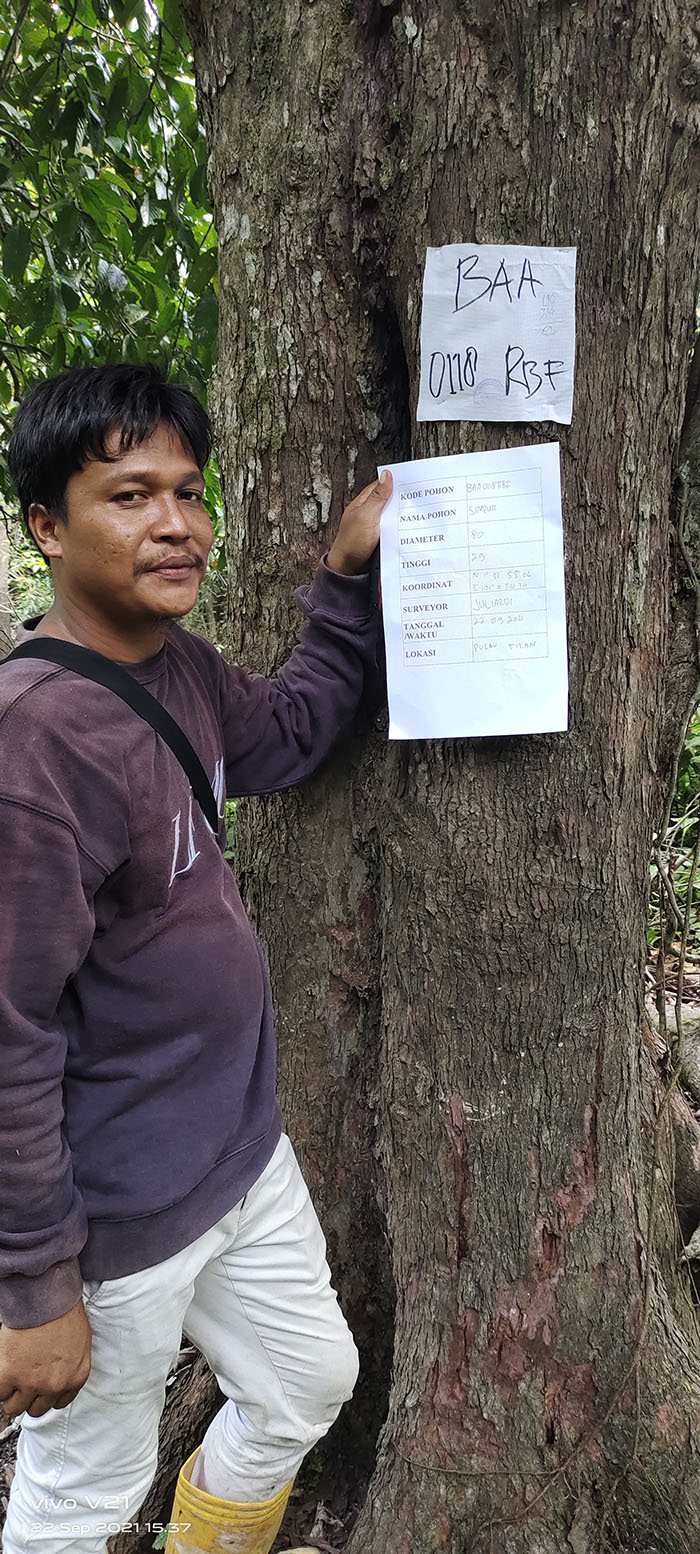 BAA
0118 RBF
KODE POHON BAA 0118 RBF
NAMA POHON SIMPUR
DIAMETER 80
TINGGI 29
KOORDINAT N 1° 32' 55.06
SURVEYOR JULIARDI
TANGGAL /WAKTU 22 09 2021
LOKASI PULAU TILAN
vivo V21
22 Sep 2021 15.37